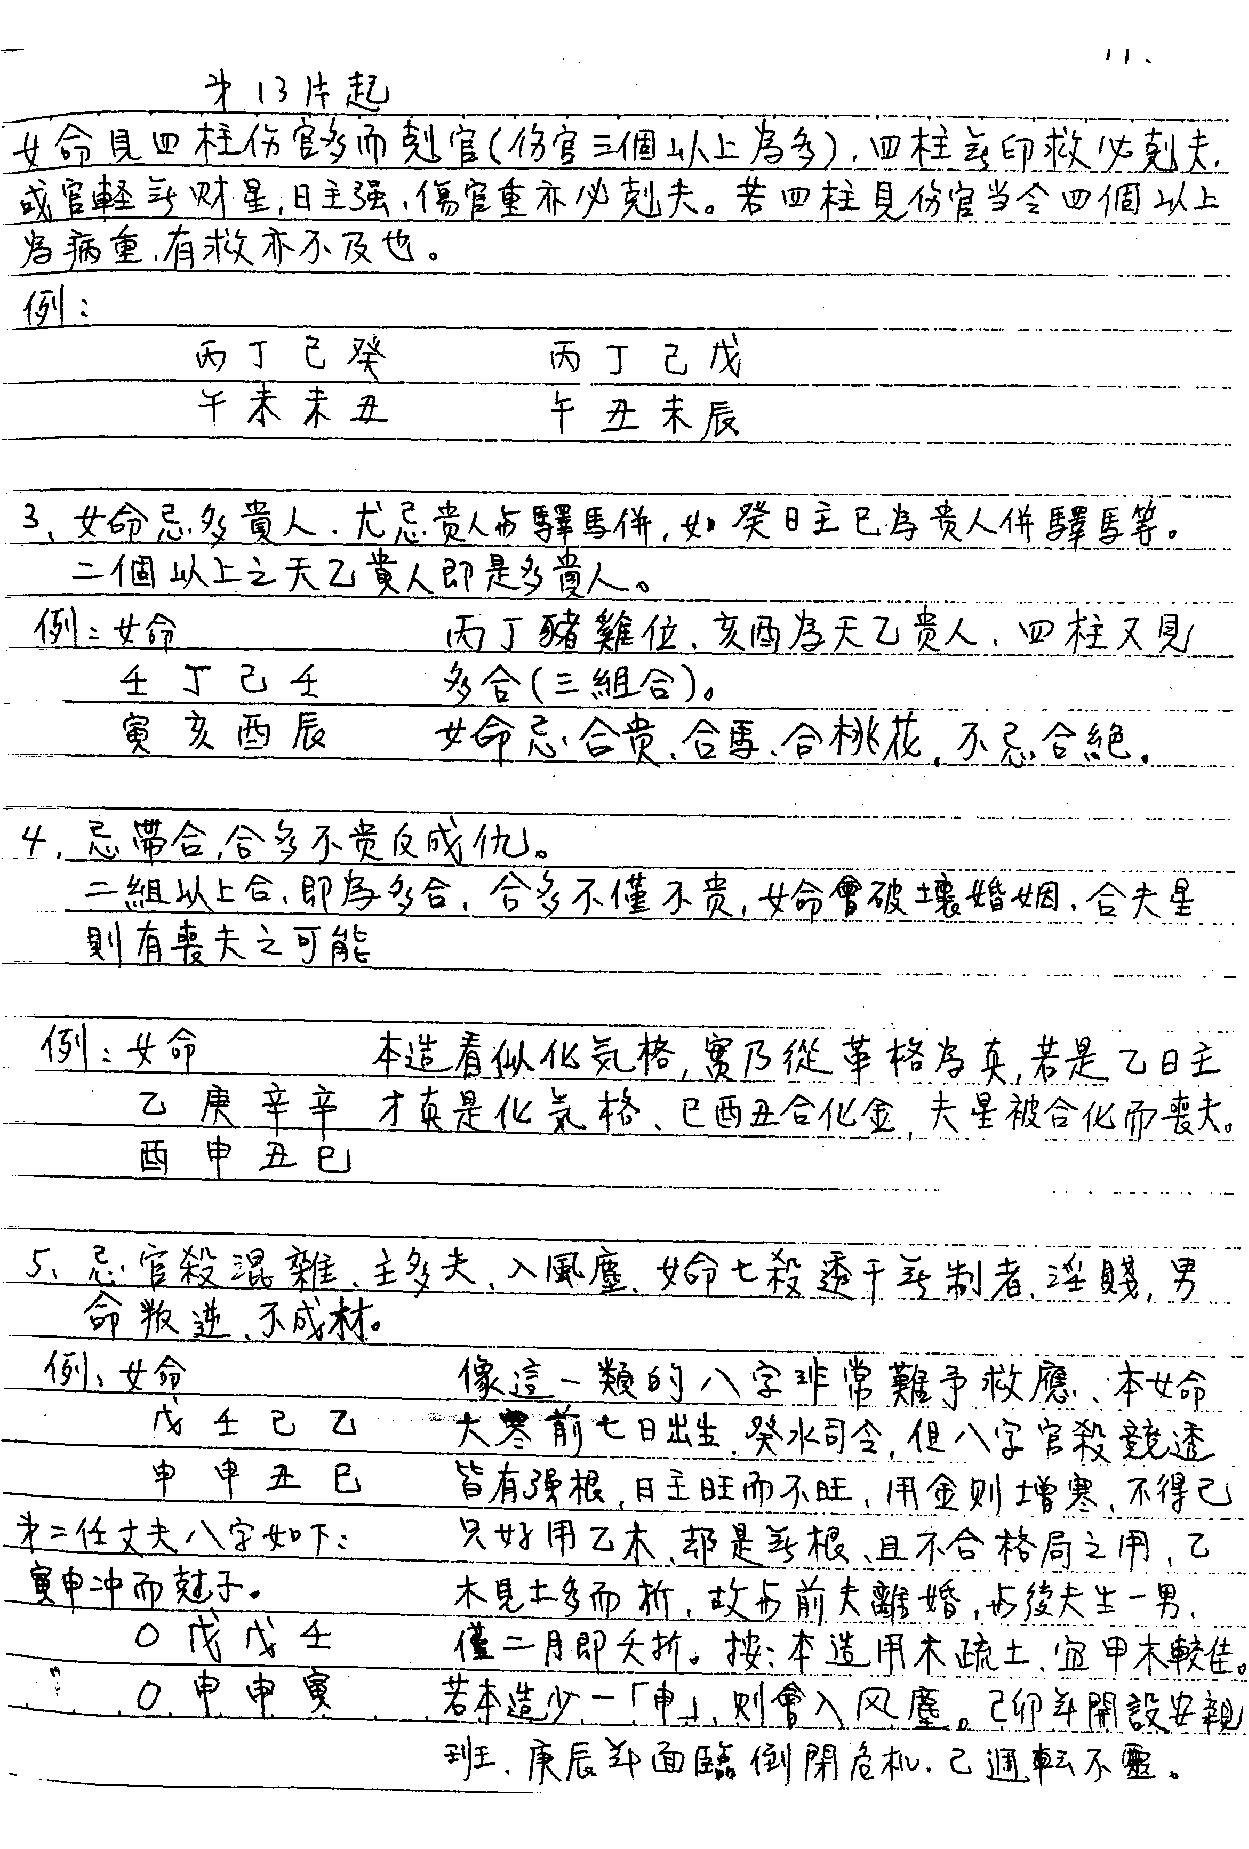 11.
第13片起
女命見四柱伤官多而剋官(伤官三個以上為多),四柱無印救必剋夫,
或官軽無财星,日主强,傷官重亦必剋夫。若四柱見伤官当令四個以上
為病重,有救亦不及也。
例:
丙丁己癸 丙丁己戊
午未未丑 午丑未辰
3、女命忌多貴人.尤忌貴人与驛馬併,如癸日主巳為貴人併驛馬等。
二個以上之天乙貴人即是多貴人。
例:女命 丙丁豬雞位、亥酉為天乙贵人、四柱又見
壬丁己壬 多合(三組合)。
寅亥酉辰 女命忌合贵、合馬、合桃花,不忌合絕.
4,忌帶合,合多不贵反成仇。
二組以上合,即為多合,合多不僅不贵,女命會破壞婚姻,合夫星
則有喪夫之可能
例:女命 本造看似化気格,實乃從革格為真,若是乙日主
乙庚辛辛 才真是化気格、巳酉丑合化金,夫星被合化而喪夫。
酉申丑巳
5、忌官殺混雜、主多夫、入風塵、女命七殺透干無制者,淫賤,男
命叛逆、不成材。
例:女命 像這一類的八字非常難予救應、本女命
戊壬己乙 大寒前七日出生,癸水司令,但八字官殺競透
申申丑巳 皆有强根,日主旺而不旺,用金則增寒,不得已
第二任丈夫八字如下: 只好用乙木、却是無根、且不合格局之用,乙
寅申冲而剋子。 木見土多而折,故与前夫離婚,与後夫生一男,
0戊戊壬 僅二月即夭折。按:本造用木疏土、宜甲木較佳。
0申申寅 若本造少一「申」則會入风塵。己卯年開設安親
班、庚辰年面臨倒閉危机.已週転不靈。